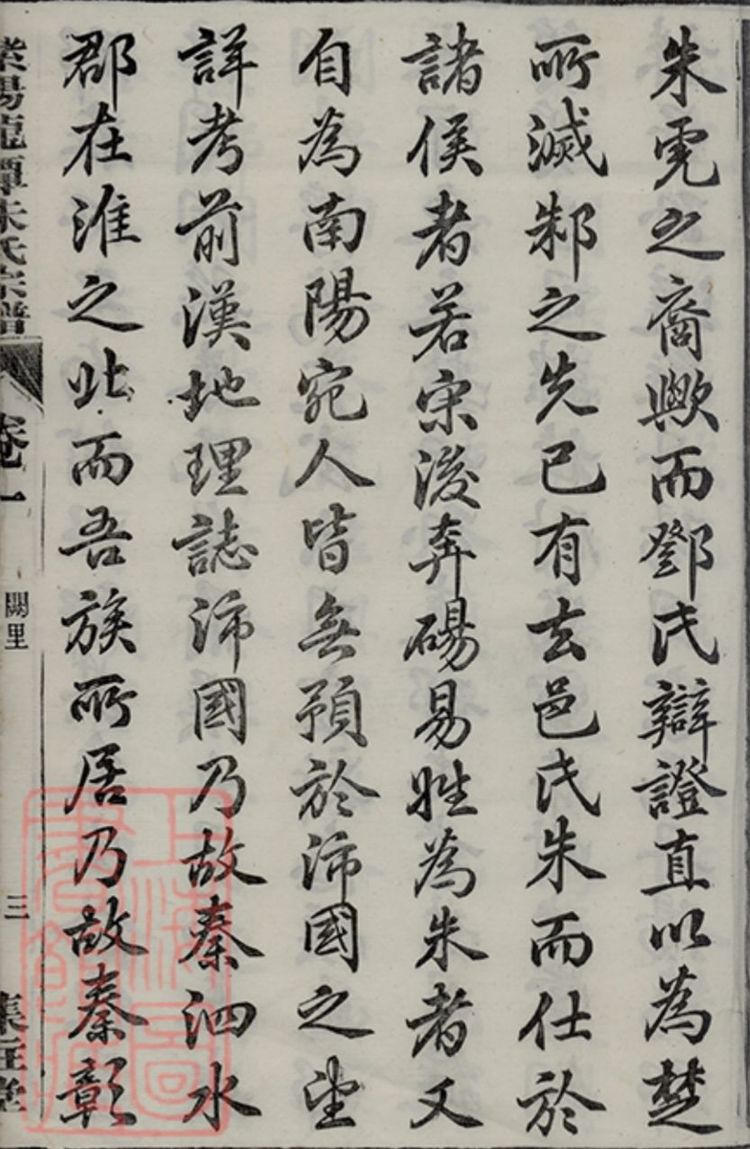 朱虎之裔歟而鄧氏辯證直以為楚
所滅邾之先已有去邑氏朱而仕於
諸侯者若宋後奔碭易姓為朱者又
自為南陽宛人皆無預於沛國之望
詳考前漢地理誌沛國乃故秦泗水
郡在淮之北而吾族所居乃故秦彰
紫陽龍潭朱氏宗譜
卷一
闕里
三
集